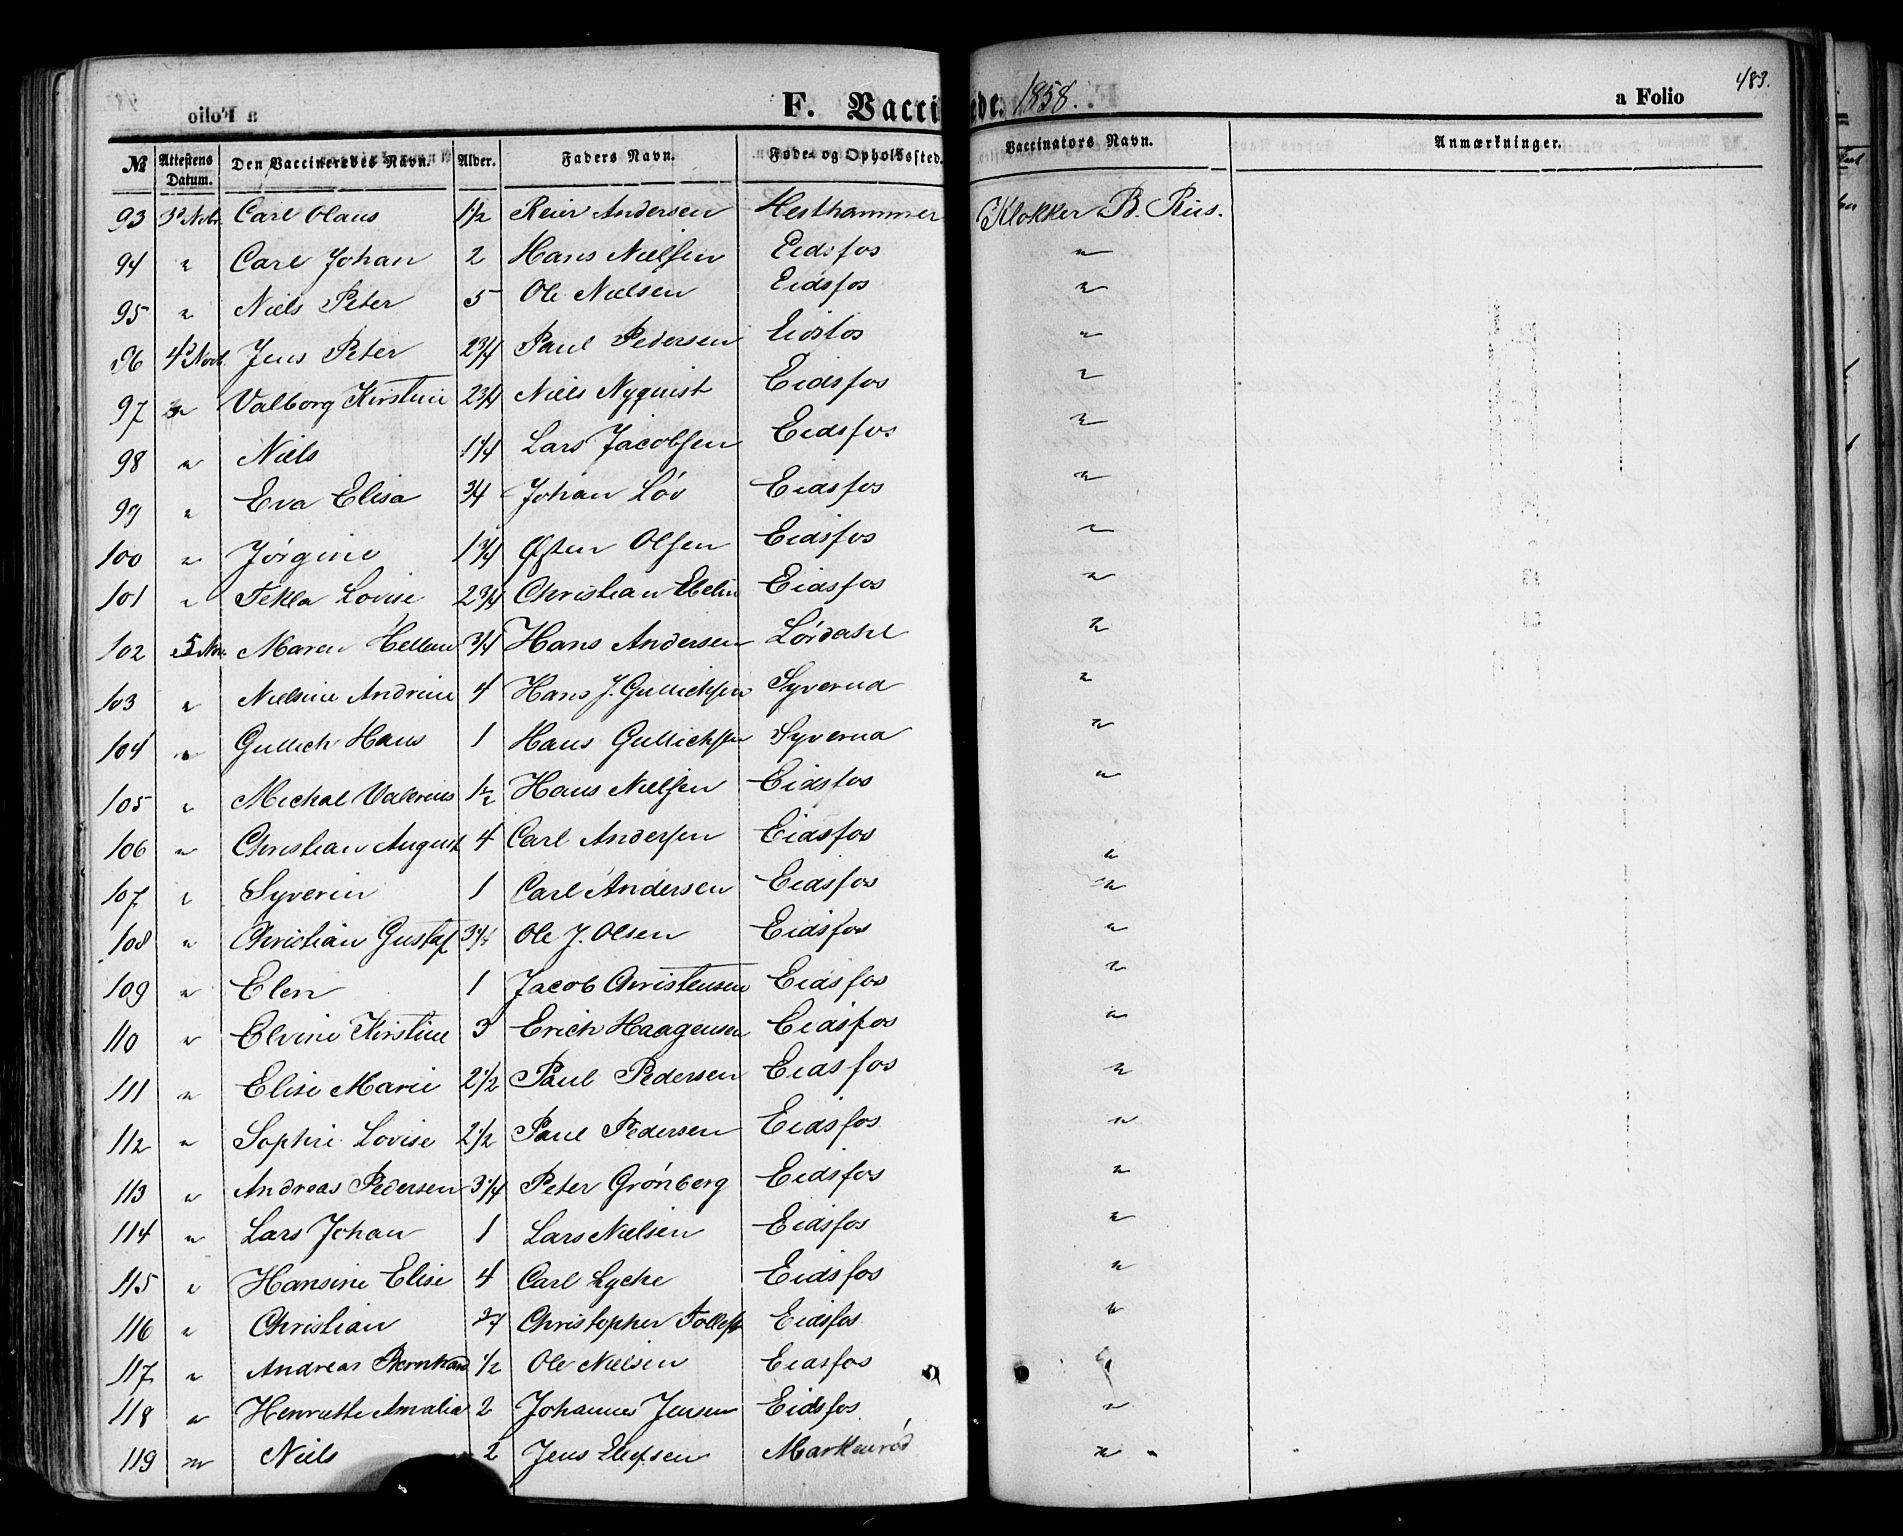 F. Vacci nede. 1858. a Folio 483.
№ Attestens Datum. Den Vaccineredes Navn. Alder. Faders Navn. Føde- og Opholdssted. Vaccinators Navn. Anmærkninger.
93 3d Nob. Carl Olaus 1 1/2 Reier Andersen Hesthammer Klokker B. Riis.
94 " Carl Johan 2 Hans Nielsen Eidsfos "
95 " Niels Peter 5 Ole Nielsen Eidsfos "
96 4d Novb. Jens Peter 2 3/4 Paul Pedersen Eidsfos "
97 " Valborg Kirstine 2 3/4 Niels Nyquist Eidsfos "
98 " Niels 1 1/4 Lars Jacobsen Eidsfos "
99 " Eva Elisa 3/4 Johan Løv Eidsfos "
100 " Jørgine 1 3/4 Østen Olsen Eidsfos "
101 " Tekla Lovise 2 3/4 Christian Eidsfos "
102 5 Nov. Maren Hellene 3/4 Hans Andersen Lørdahl "
103 " Nielsine Andrine 4 Hans J. Gullichsen Syverud "
104 " Gullich Hans 1 Hans Gullichsen Syverud "
105 " Michal Valerius 1 1/2 Hans Nielsen Eidsfos "
106 " Christian August 4 Carl Andersen Eidsfos "
107 " Syverin 1 Carl Andersen Eidsfos "
108 " Christian Gustaf 3 1/4 Ole J. Olsen Eidsfos "
109 " Elen 1 Jacob Christensen Eidsfos "
110 " Elvine Kirstine 3 Erich Haagensen Eidsfos "
111 " Elise Marie 2 1/2 Paul Pedersen Eidsfos "
112 " Sophie Lovise 2 1/2 Paul Pedersen Eidsfos "
113 " Andreas Pedersen 3 1/4 Peter Grønberg Eidsfos "
114 " Lars Johan 1 Lars Nielsen Eidsfos "
115 " Hansine Elise 4 Carl Lycke Eidsfos "
116 " Christian 3/4 Christopher Eidsfos "
117 " Andreas Bernhard 1/2 Ole Nielsen Eidsfos "
118 " Henriette Amalia 2 Johannes Jensen Eidsfos "
119 " Niels 2 Jens Markerød "